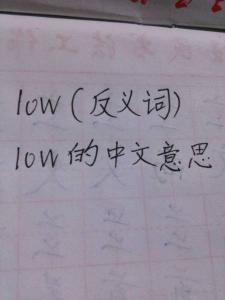 low(反义词)
low的中文意思